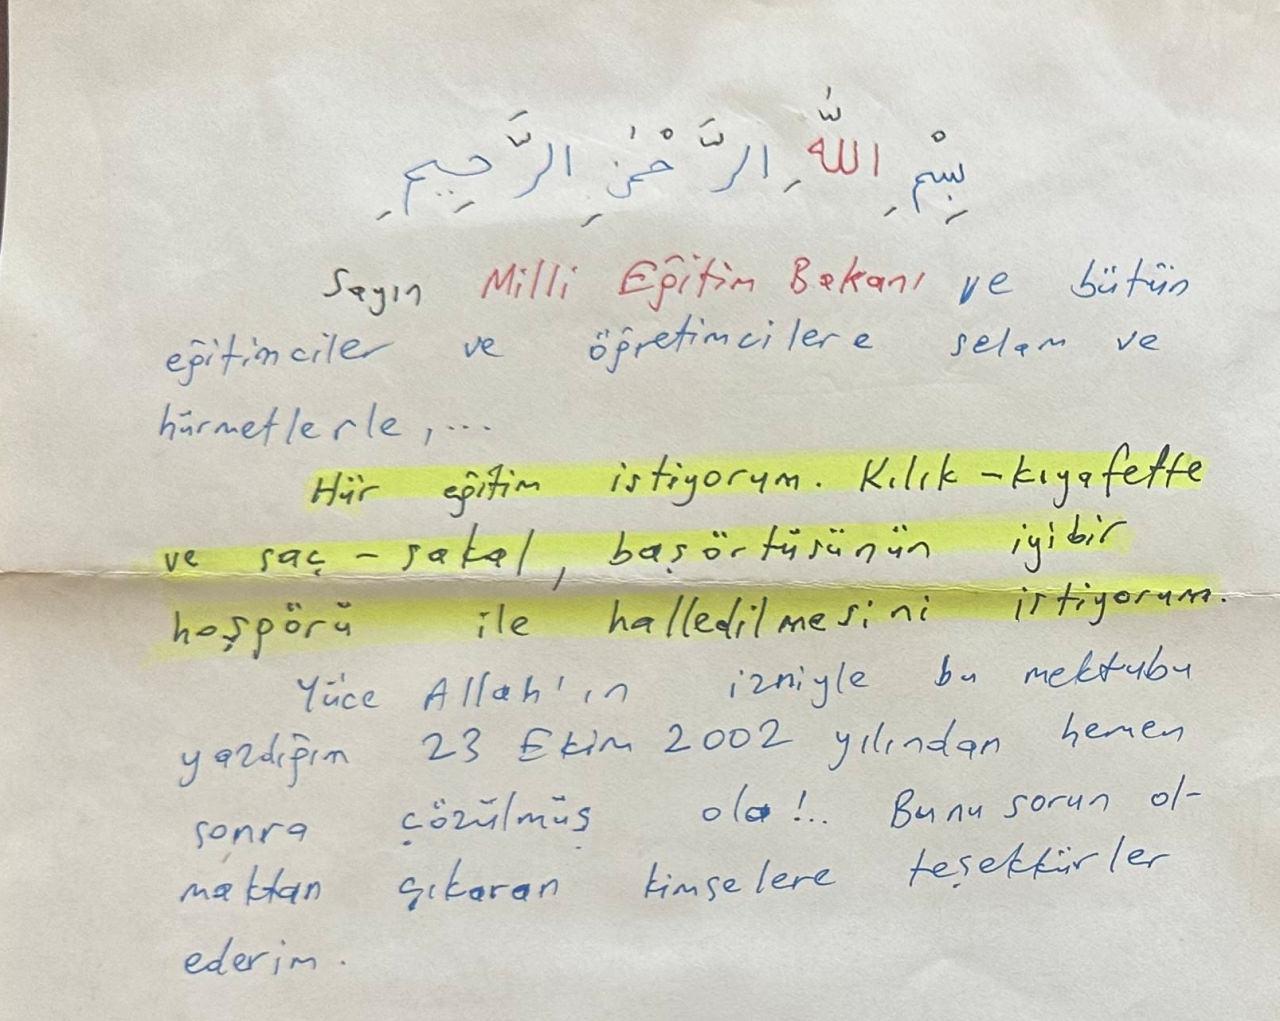 بِسْمِ اللّٰهِ الرَّحْمٰنِ الرَّحِيمِ
Sayın Milli Eğitim Bakanı ve bütün
eğitimciler ve öğretimcilere selam ve
hürmetlerle,...
Hür eğitim istiyorum. Kılık-kıyafette
ve saç-sakal, başörtüsünün iyibir
hoşgörü ile halledilmesini istiyorum.
Yüce Allah'ın izniyle bu mektubu
yazdığım 23 Ekim 2002 yılından hemen
sonra çözülmüş ola!.. Bunu sorun ol-
maktan çıkaran kimselere teşekkürler
ederim.